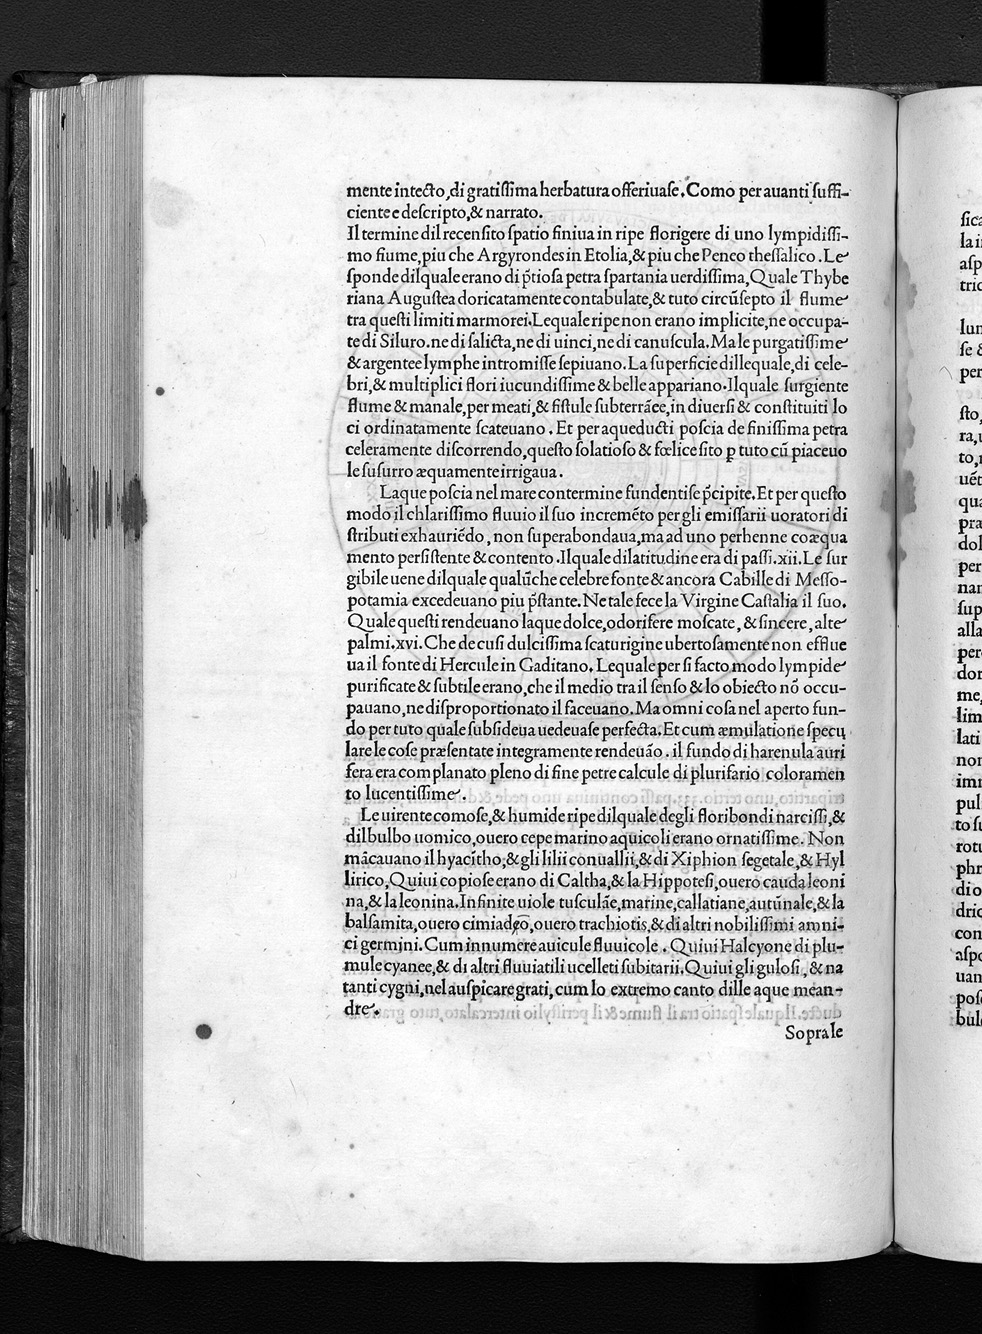 mente intecto, di gratiſſima herbatura offeriuaſe. Como per auanti ſuffi-
ciente e deſcripto, & narrato.
Il termine dil recenſito ſpatio finiua in ripe florigere di uno lympidiſſi-
mo fiume, piu che Argyrondes in Etolia, & piu che Peneo theſſalico. Le
ſponde dilquale erano di p̃tioſa petra ſpartania uerdiſſima, Quale Thybe
riana Auguſtea doricatamente contabulate, & tuto circũſepto il flume
tra queſti limiti marmorei. Lequale ripe non erano implicite, ne occupa-
te di Siluro. ne di ſalicta, ne di uinci, ne di canuſcula. Ma le purgatiſſime
& argentee lymphe intromiſſe ſepiuano. La ſuperficie dillequale, di cele-
bri, & multiplici flori iucundiſſime & belle appariano. Ilquale ſurgiente
flume & manale, per meati, & fiſtule ſubterrãee, in diuerſi & conſtituiti lo
ci ordinatamente ſcateuano. Et per aqueducti poſcia de finiſſima petra
celeramente diſcorrendo, queſto ſolatioſo & fœlice ſito ꝑ tuto cũ piaceuo
le ſuſurro æquamente irrigaua.
Laque poſcia nel mare contermine fundentiſe p̃cipite. Et per queſto
modo il chlariſſimo fluuio il ſuo incremẽto per gli emiſſarii uoratori di
ſtributi exhauriẽdo, non ſuperabondaua, ma ad uno perhenne coæqua
mento perſiſtente & contento. Ilquale di latitudine era di paſſi. xii. Le ſur
gibile uene dilquale qualũche celebre fonte & ancora Cabille di Meſſo-
potamia excedeuano piu p̃ſtante. Ne tale fece la Virgine Caſtalia il ſuo.
Quale queſti rendeuano laque dolce, odorifere moſcate, & ſincere, alte
palmi. xvi. Che de cuſi dulciſſima ſcaturigine ubertoſamente non efflue
ua il fonte di Hercule in Gaditano. Lequale per ſi facto modo lympide
purificate & ſubtile erano, che il medio tra il ſenſo & lo obiecto nõ occu-
pauano, ne diſproportionato il faceuano. Ma omni coſa nel aperto fun-
do per tuto quale ſubſideua uedeuaſe perfecta. Et cum æmulatione ſpecu
lare le coſe præſentate integramente rendeuão. il fundo di harenula auri
fera era complanato pleno di fine petre calcule di plurifario coloramen
to lucentiſſime.
Le uirente comoſe, & humide ripe dilquale degli floribondi narciſſi, &
dil bulbo uomico, ouero cepe marino aquicoli erano ornatiſſime. Non
mãcauano il hyacĩtho, & gli lilii conuallii, & di Xiphion ſegetale, & Hyl
lirico, Quiui copioſe erano di Caltha, & la Hippoteſi, ouero cauda leoni
na, & la leonina. Infinite uiole tuſculãe, marine, callatiane, autũnale, & la
balſamita, ouero trachiotis, & di altri nobiliſſimi amni-
ci germini. Cum innumere auicule fluuicole. Quiui Halcyone di plu-
mule cyanee, & di altri fluuiatili ucelleti ſubitarii. Quiui gli guloſi, & na
tanti cygni, nel auſpicare grati, cum lo extremo canto dille aque mean-
dre.
Sopra le